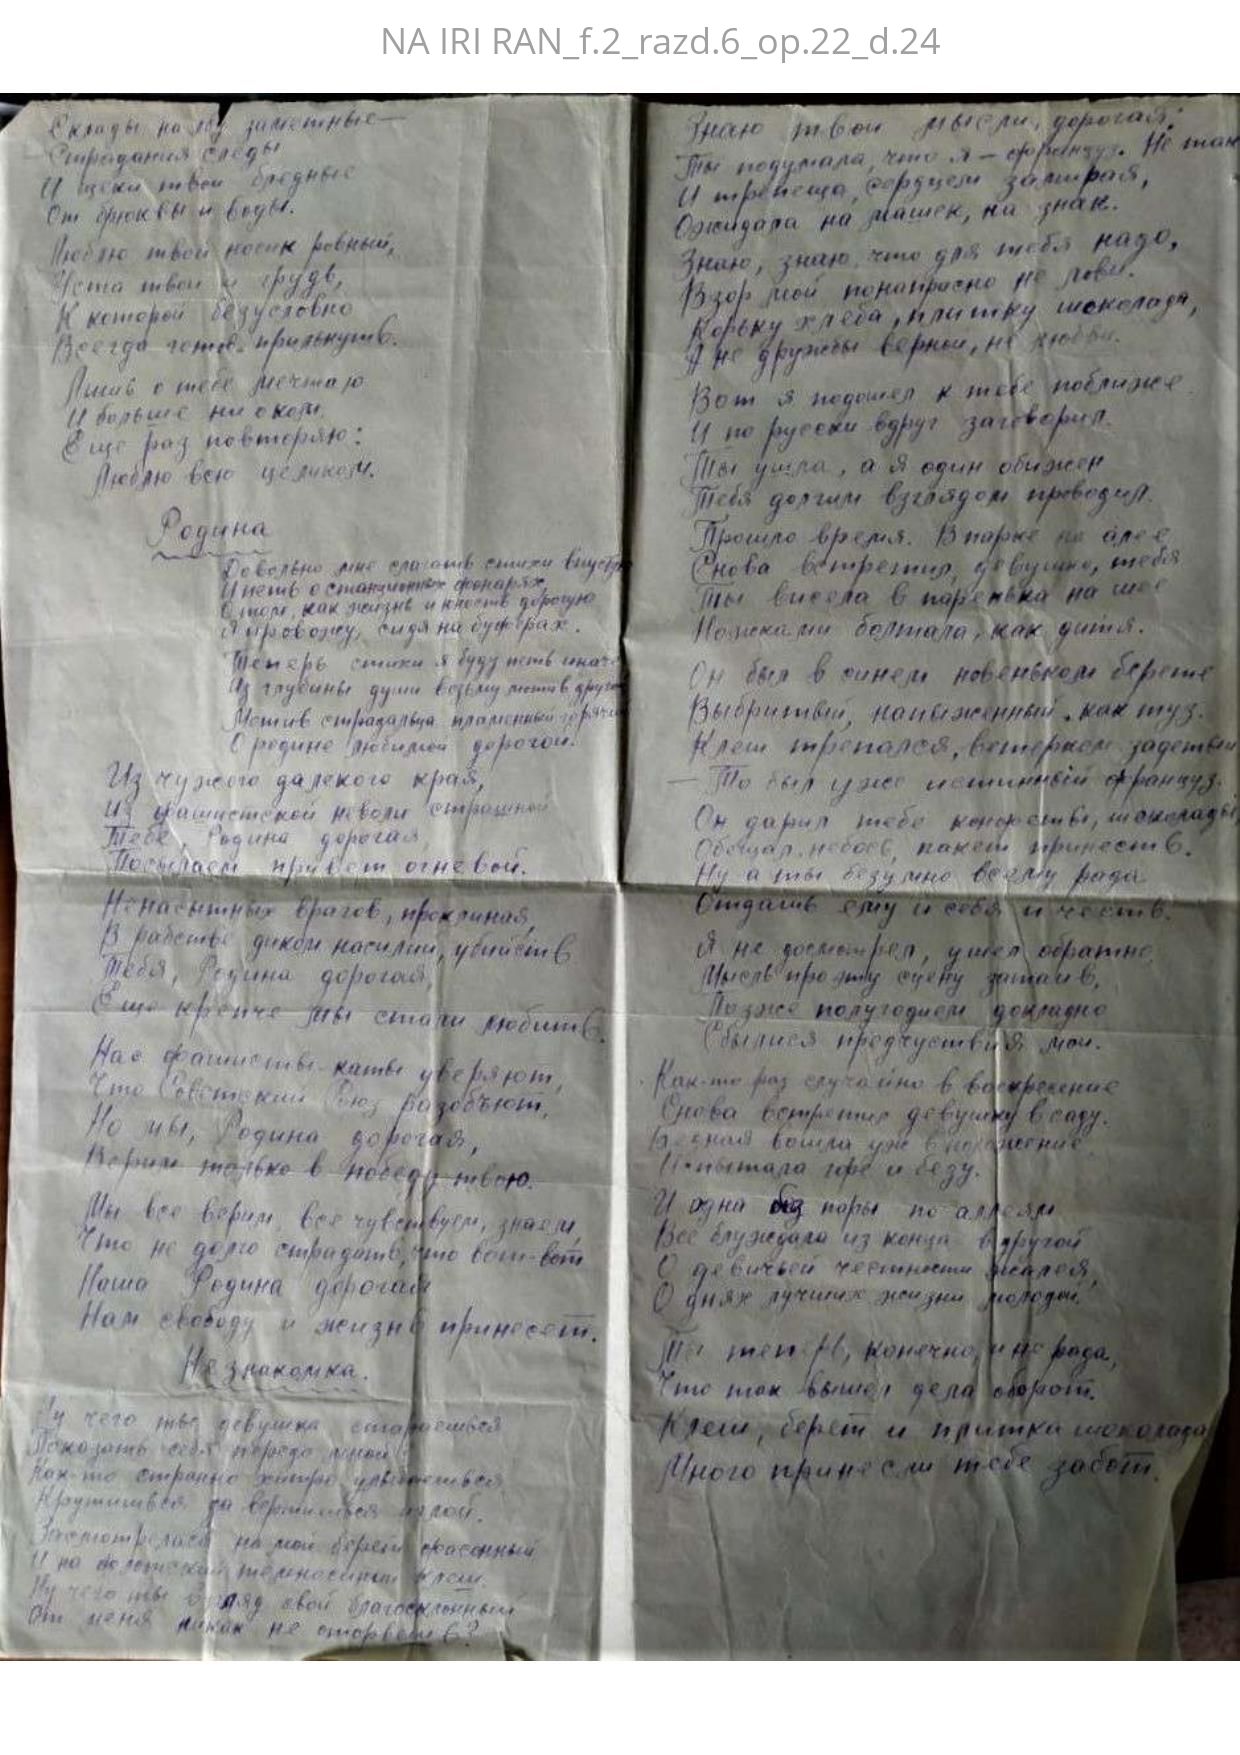 NA IRI RAN_f.2_razd.6_op.22_d.24
Склады на лбу заметные—
Страдания следы
И щеки твои бледные
От брюквы и воды.
Люблю твой носик ровный,
Уста твои и грудь,
К которой безусловно
Всегда готов прильнуть.
Лишь о тебе мечтаю
И больше ни о ком.
Еще раз повторяю:
Люблю всю целиком.
Родина
Довольно мне слагать стихи впустую
И петь о станционных фонарях,
О том, как жизнь и юность дорогую
Я провожу, сидя на буферах.
Теперь стихи я буду петь иначе
Из глубины души возьму мотив другой
Мотив страдальца пламенный горячий
О родине любимой дорогой.
Из чужого далекого края,
Из фашистской неволи страшной
Тебе, Родина дорогая,
Посылаем привет огневой.
Ненасытных врагов, проклиная,
В рабстве диком насилий, убийств
Тебя, Родина дорогая,
Еще крепче мы стали любить.
Нас фашисты-каты уверяют,
Что Советский Союз разобьют,
Но мы, Родина дорогая,
Верим только в победу твою.
Мы все верим, все чувствуем, знаем,
Что не долго страдать, что вот-вот
Наша Родина дорогая
Нам свободу и жизнь принесет.
Незнакомка.
Ну чего ты девушка стараешься
Показать себя передо мной?
Как-то странно хитро улыбаешься
Крутишься да вертишься юлой.
Засмотрелась на мой берет фасонный
И на флотский темносиний клеш.
Ну чего ты взгляд свой благосклонный
От меня никак не оторвешь?
Знаю твои мысли, дорогая:
Ты подумала, что я — француз. Не так
И трепеща, сердцем замирая,
Ожидала на машек, на знак.
Знаю, знаю, что для тебя надо,
Взор мой понапрасно не лови.
Корьку хлеба, плитку шоколада,
А не дружбы верной, не любви.
Вот я подошел к тебе поближе
И по русски вдруг заговорил.
Ты ушла, а я один обижен
Тебя долгим взглядом проводил.
Прошло время. В парке на алее
Снова встретил, девушка, тебя
Ты висела в паренька на шее
Ножками болтала, как дитя.
Он был в синем новеньком берете
Выбритый, напыженный, как туз.
Клеш трепался, ветерком задетый
— То был уже истинный француз.
Он дарил тебе конфеты, шоколады,
Обещал, небось, пакет принесть.
Ну а ты безумно всему рада
Отдашь ему и себя и честь.
Я не досмотрел, ушел обратно,
Мысль про эту сцену затаив,
Позже полугодием докладно
Сбылися предчуствия мои.
Как-то раз случайно в воскресение
Снова встретил девушку в саду.
Бедная вошла уж в положение,
Испытала горе и беду.
И одна без пары по аллеям
Все блуждала из конца в другой
О девичьей честности жалея,
О днях лучших жизни молодой.
Ты теперь, конечно, и не рада,
Что так вышел дела оборот.
Клеш, берет и плитка шоколада
Много принесли тебе забот.